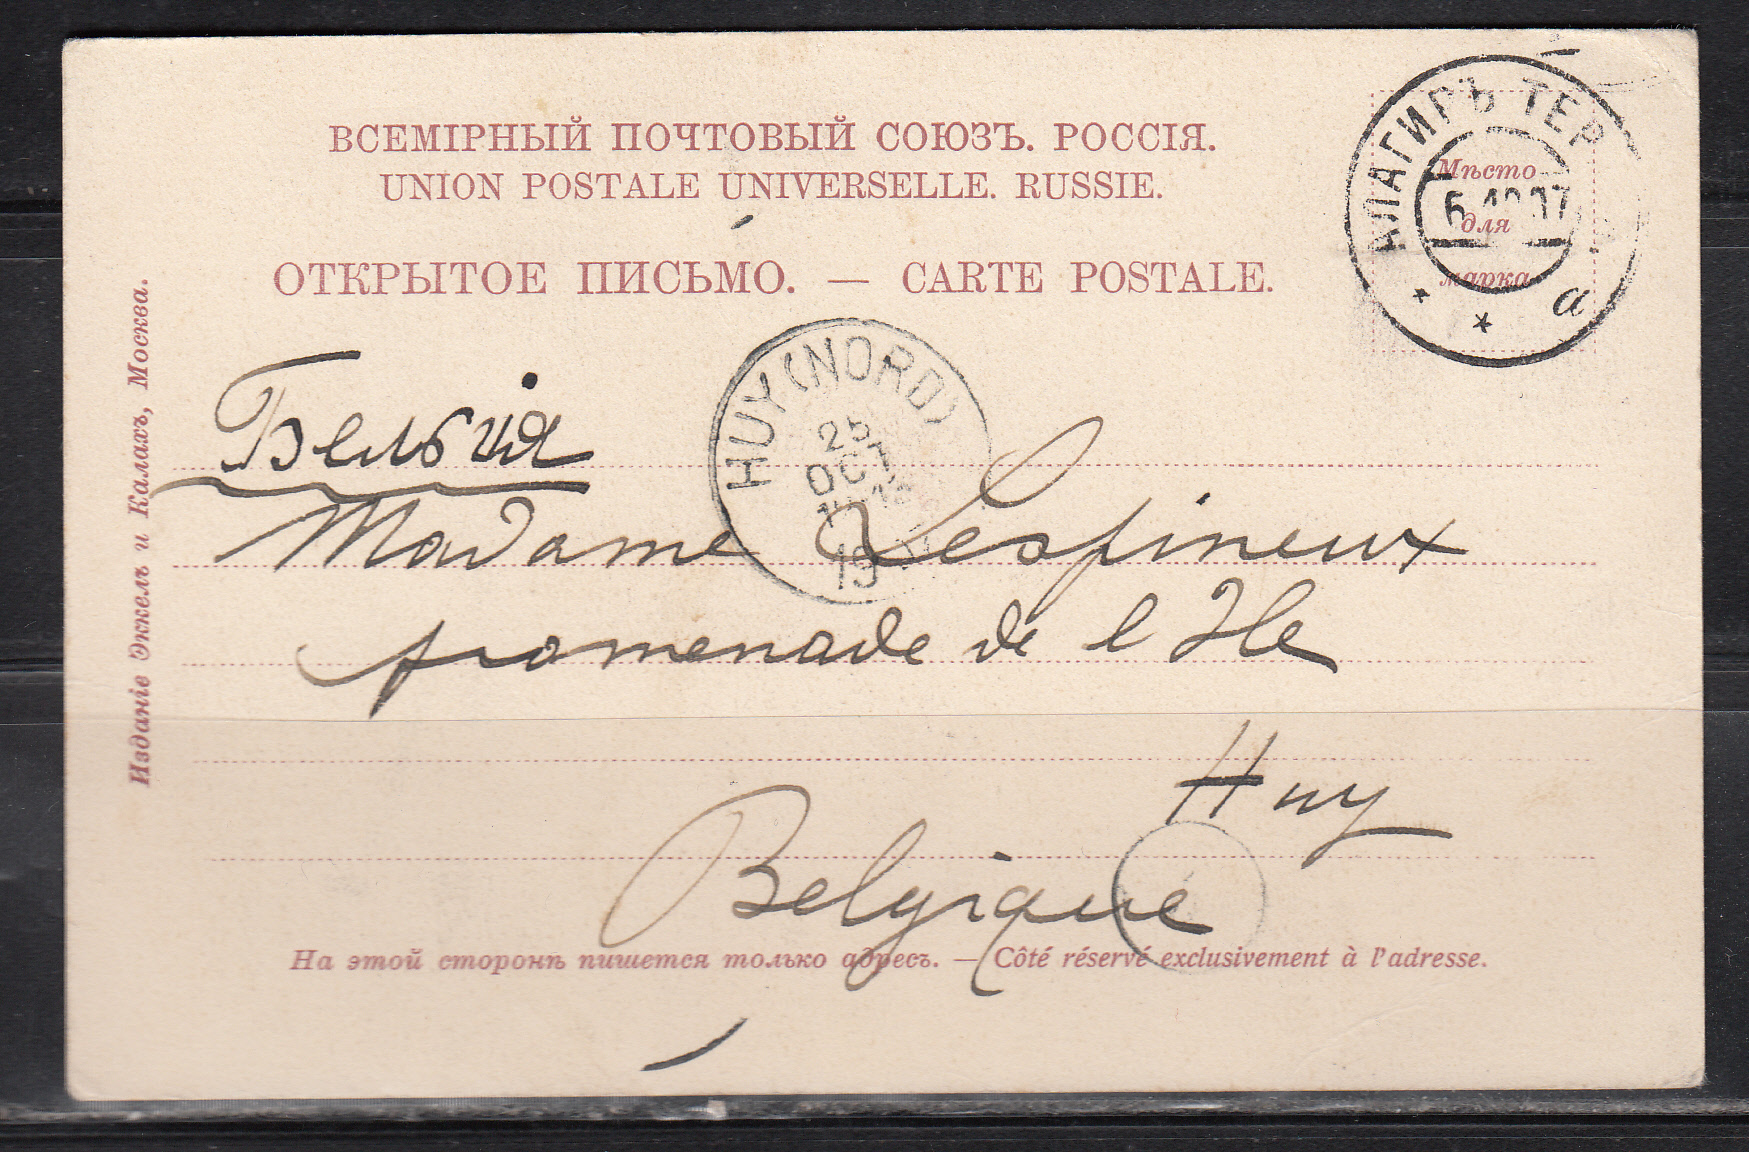 ВСЕМІРНЫЙ ПОЧТОВЫЙ СОЮЗЪ. РОССІЯ.
UNION POSTALE UNIVERSELLE. RUSSIE.
ОТКРЫТОЕ ПИСЬМО. — CARTE POSTALE.
АЛАГИРЪ ТЕР
6 10 07
а
Мѣсто
для
марка
HUY (NORD)
25
OCT
19
Бельгія
Madame Lespineux
promenade de l'Ile
Huy
Belgique
На этой сторонѣ пишется только адресъ. — Côté réservé exclusivement à l'adresse.
Изданіе Эккель и Калахъ, Москва.